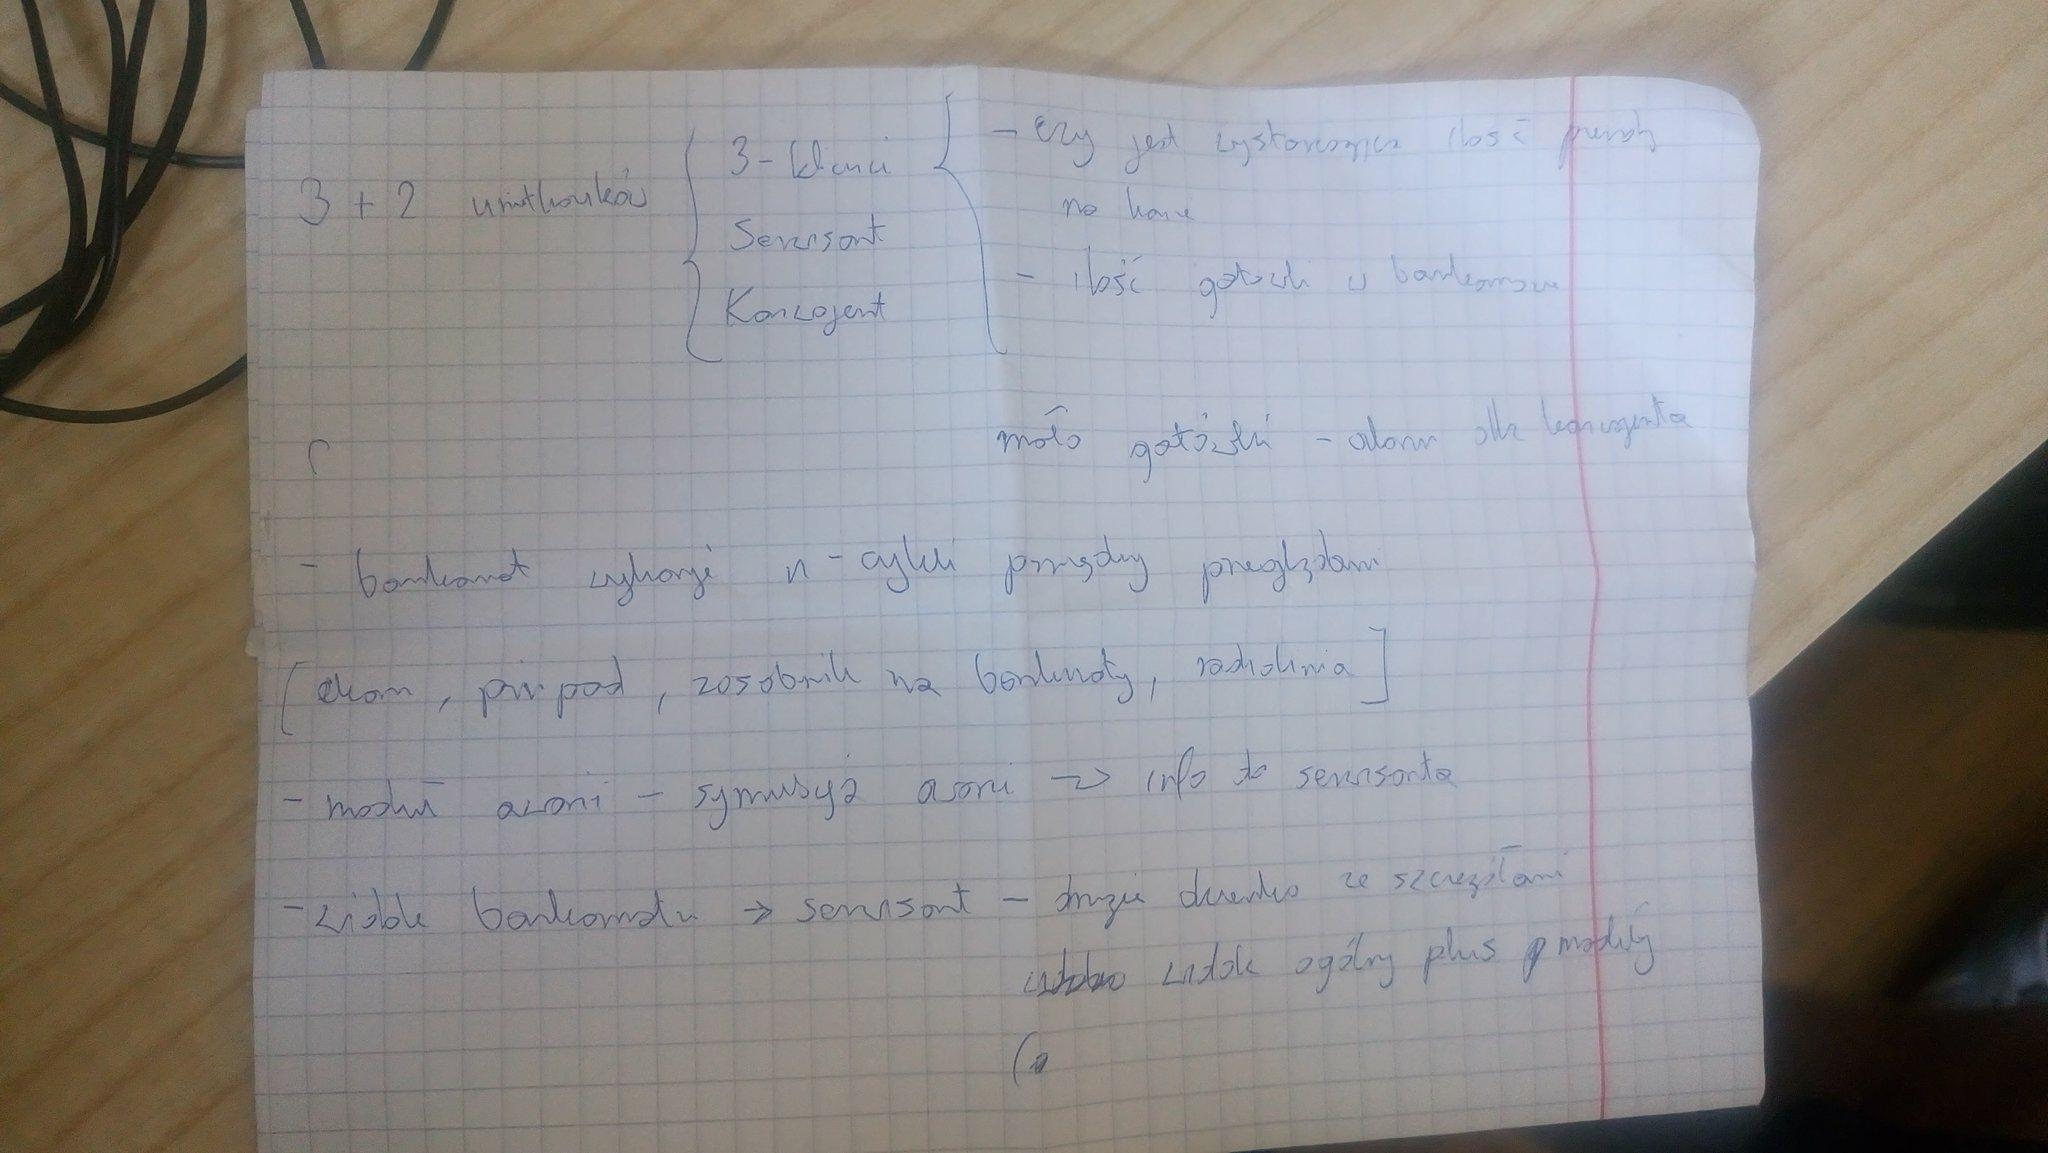 3 + 2 użytkowników
3 - klienci
Serwisant
Konwojent
- czy jest wystarczająca ilość pieniędzy
na koncie
- ilość gotówki w bankomacie
mało gotówki - alarm dla konwojenta
- bankomat wykonuje n - cykli pomiędzy przeglądami
[ekran, pin pad, zasobnik na banknoty, radiolinia]
- moduł awarii - symulacja awarii => info do serwisanta
- widok bankomatu -> serwisant - drugie okienko ze szczegółami
widok ogólny plus moduły